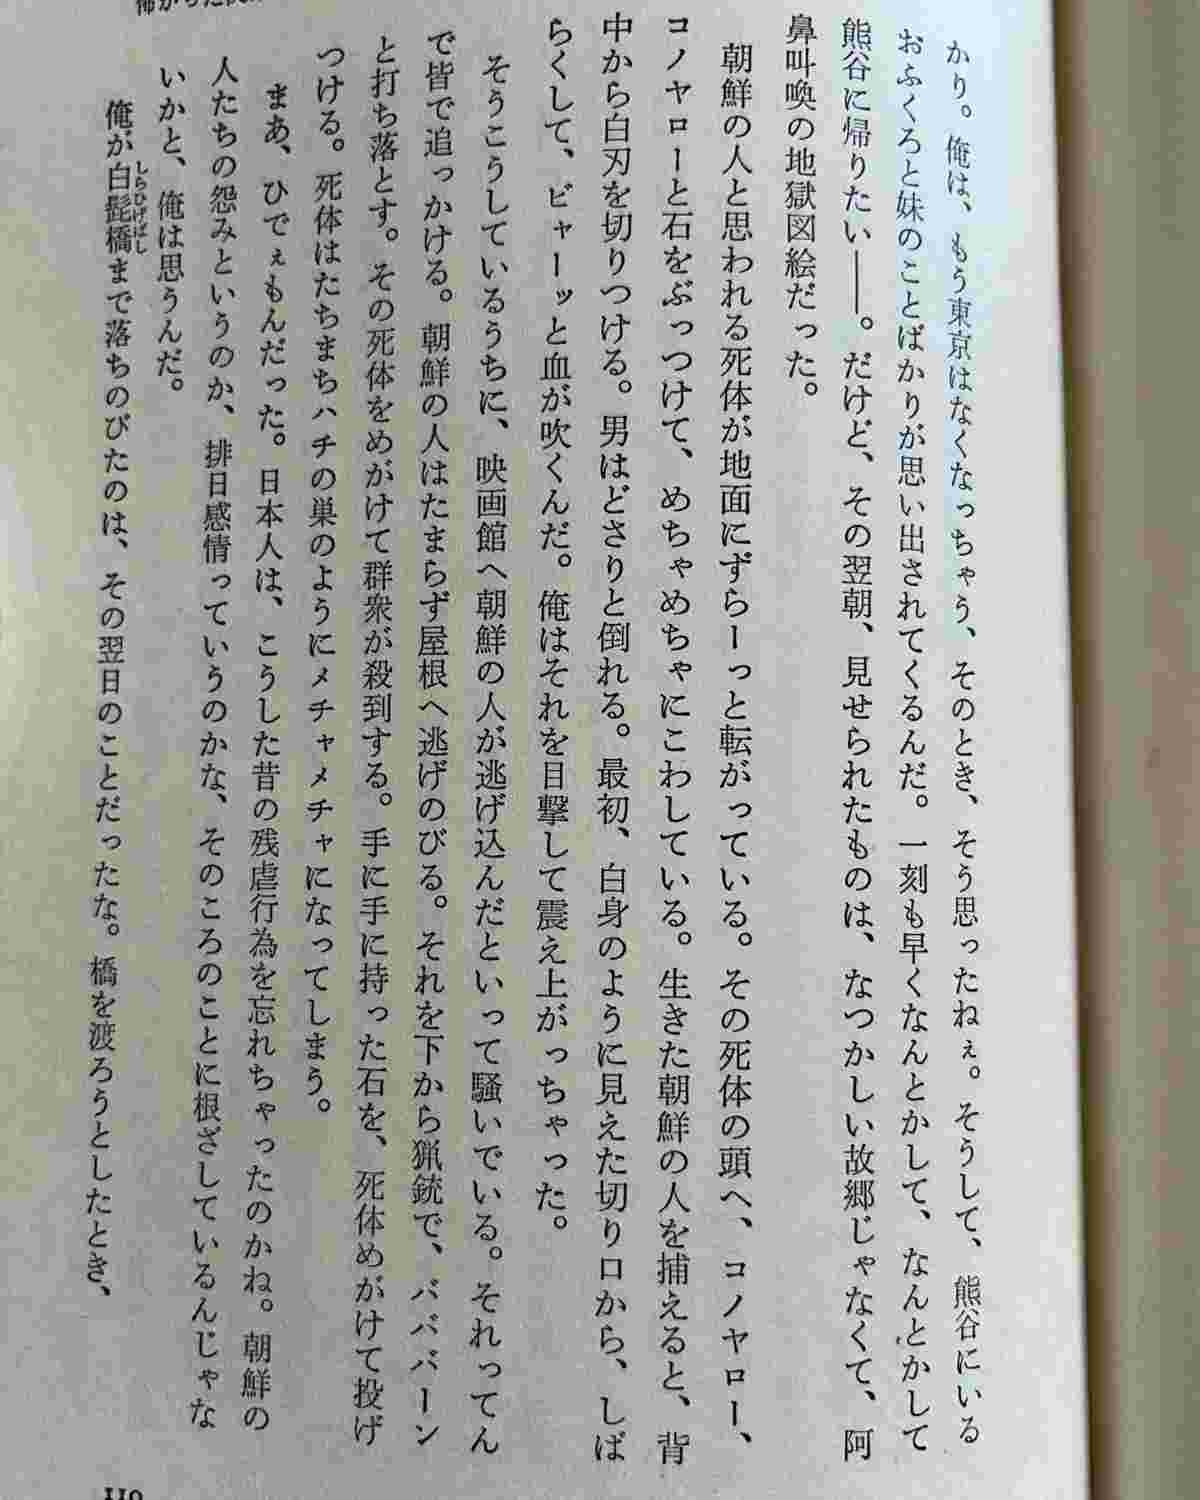 かり。俺は、もう東京はなくなっちゃう、そのとき、そう思ったねぇ。そうして、熊谷にいる
おふくろと妹のことばかりが思い出されてくるんだ。一刻も早くなんとかして、なんとかして
熊谷に帰りたい――。だけど、その翌朝、見せられたものは、なつかしい故郷じゃなくて、阿
鼻叫喚の地獄図絵だった。
朝鮮の人と思われる死体が地面にずらーっと転がっている。その死体の頭へ、コノヤロー、
コノヤローと石をぶっつけて、めちゃめちゃにこわしている。生きた朝鮮の人を捕えると、背
中から白刃を切りつける。男はどさりと倒れる。最初、白身のように見えた切り口から、しば
らくして、ビャーッと血が吹くんだ。俺はそれを目撃して震え上がっちゃった。
そうこうしているうちに、映画館へ朝鮮の人が逃げ込んだといって騒いでいる。それってん
で皆で追っかける。朝鮮の人はたまらず屋根へ逃げのびる。それを下から猟銃で、バババーン
と打ち落とす。その死体をめがけて群衆が殺到する。手に手に持った石を、死体めがけて投げ
つける。死体はたちまちハチの巣のようにメチャメチャになってしまう。
まあ、ひでぇもんだった。日本人は、こうした昔の残虐行為を忘れちゃったのかね。朝鮮の
人たちの怨みというのか、排日感情っていうのかな、そのころのことに根ざしているんじゃな
いかと、俺は思うんだ。
俺が白髭橋まで落ちのびたのは、その翌日のことだったな。橋を渡ろうとしたとき、
しらひげばし